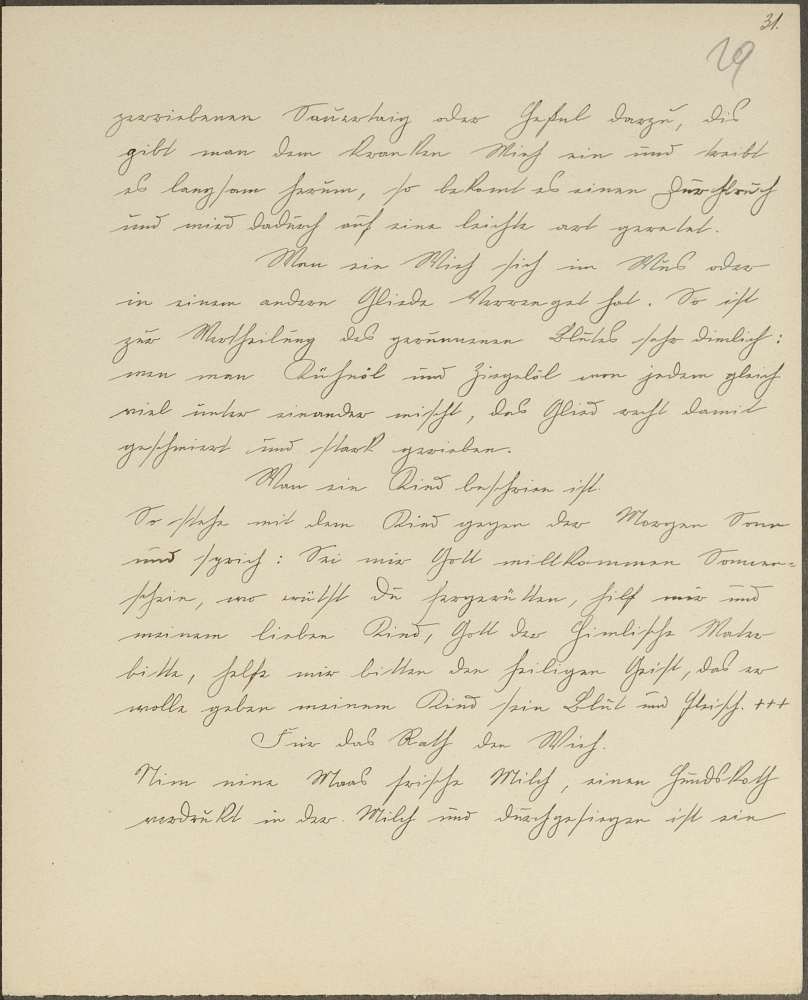 31.
29
zerriebenen Sauerteig oder Hefnel darzu, dis
gibt man dem kranken Vieh ein und treibt
es langsam herum, so bekomt es einen Durchbruch
und wird dadurch auf eine leichte art geretet.
Wen ein Vieh sich im Bus oder
in einem andern Gliede Verrenget hat. So ist
zur Vertheilung des gerunnenen Blutes sehr dienlich:
wen man Kühnöl und Ziegelöl von jedem gleich
viel unter einander mischt, das Glied recht damit
geschmiert und stark gerieben.
Wan ein Kind beschrien ist.
So stehe mit dem Kind gegen der Morgen Sonn
und sprich: Sei mir Gott willkommen Sonnen=
schein, wo reitst du hergeritten, hilf mir und
meinem lieben Kind, Gott der Himlische Vater
bitte, helfe mir bitten den heiligen Geist, das er
wolle geben meinem Kind sein Blut und Fleisch. +++
Für das Rath den Vieh.
Nim eine Maas frische Milch, einen Hundskoth
verdrukt in der Milch und durchgesiegen ist ein